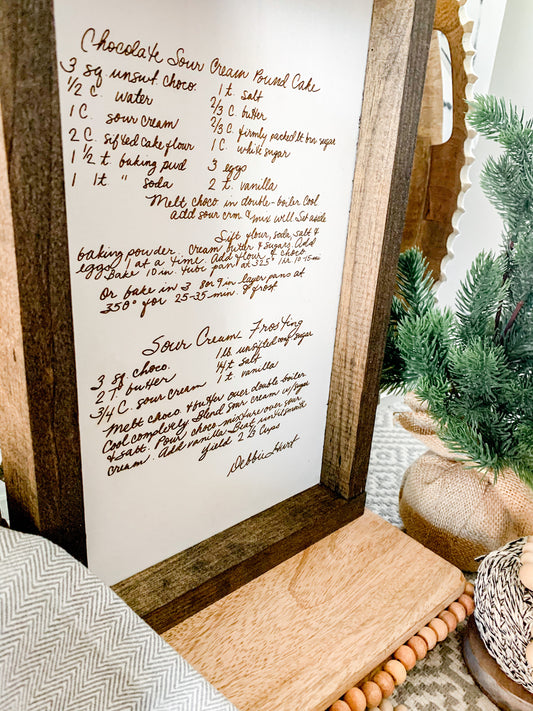 Chocolate Sour Cream Pound Cake
3 sq. unswt choco.
1/2 C. water
1 C. sour cream
2 C. sifted Cake flour
1 1/2 t. baking pwd
1 1t " soda
1 t. salt
2/3 C. butter
2/3 C. firmly packed lt brn sugar
1 C. white sugar
3 eggs
2 t. vanilla
Melt choco in double-boiler Cool
add sour crm & mix well Set aside
Sift flour, soda, salt &
baking powder. Cream butter & sugars. Add
eggs 1 at a time. Add flour & choco
Bake 10 in. tube pan at 325° 1 hr 10-15 m
Or bake in 3 8 or 9 in layer pans at
350° for 25-35 min. & frost
Sour Cream Frosting
3 sq. choco.
2 T. butter
3/4 C. sour cream
1 lb. unsifted conf sugar
1/4 t. salt
1 t. vanilla
Melt choco & butter over double boiler
Cool completely Blend sour cream w/sugar
& salt. Pour choco mixture over sour
cream. Add vanilla Beat until smooth
yield 2 2/3 Cups
Debbie Hurst